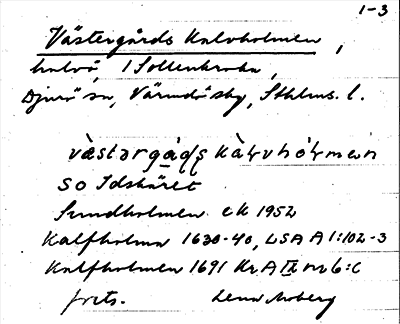 1-3
Västergårds Kalvholmen,
halvö, i Sollenkroka,
Djurö sn, Värmdö sbg, Sthlms. l.
væstərgɑ̀ḍʂ kàɭvhólmen
SO Idskäret
Sundholmen ek 1952
Kalfholma 1630-40, LSA A 1:102-3
Kalfholmen 1691 Kr A IX nr 6:c
forts. Lena Moberg